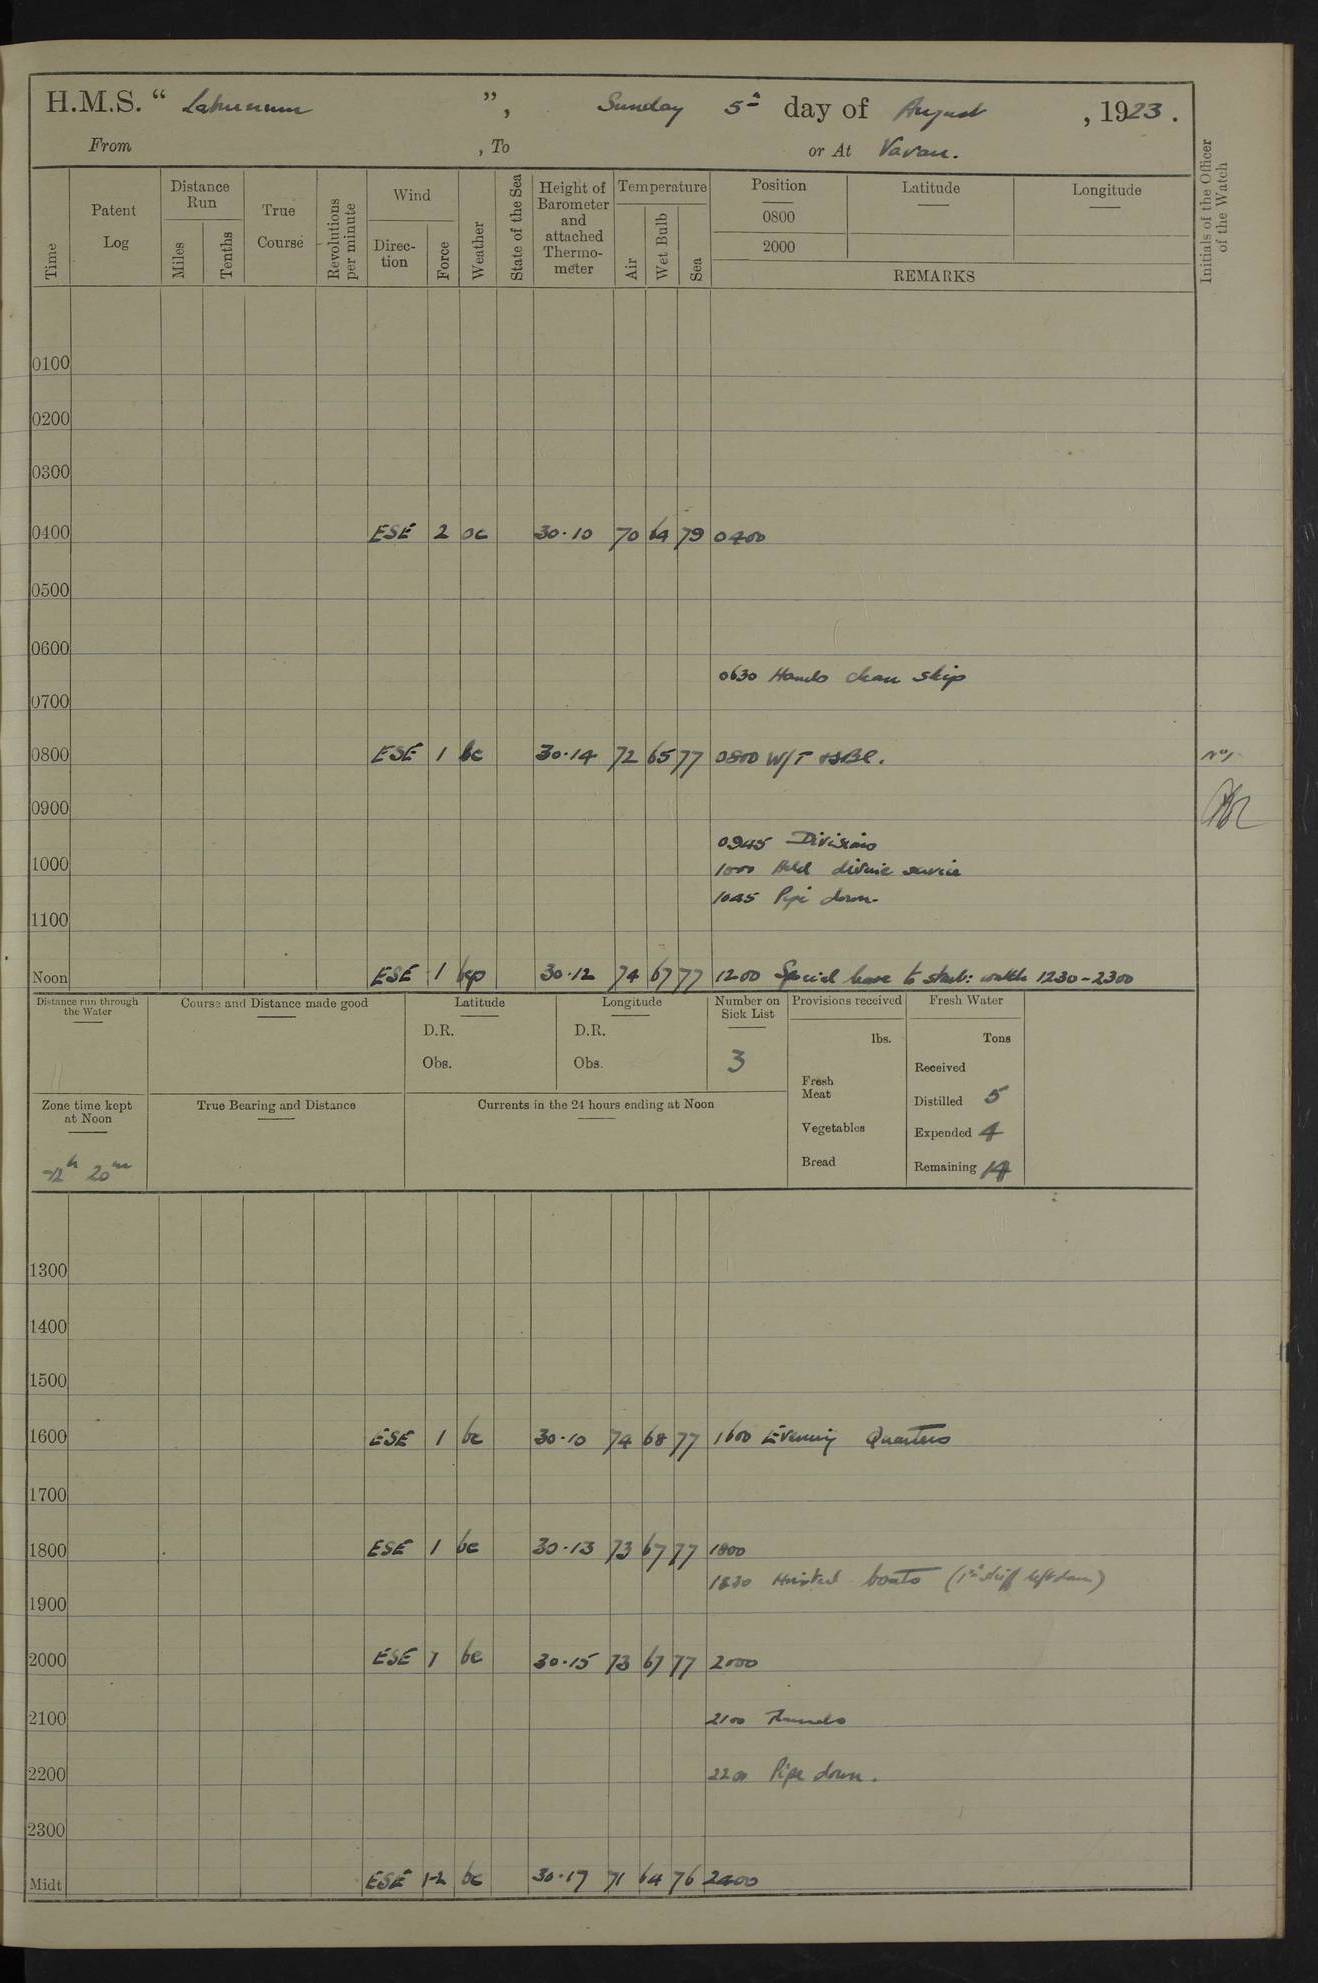 H.M.S. “ Laburnum ”, Sunday 5th day of August , 1923.
From , To or At Vavau.
Time Patent Log Distance Run Miles Tenths True Course Revolutions per minute Wind Direc-tion Force Weather State of the Sea Height of Barometer and attached Thermo-meter Temperature Air Wet Bulb Sea Position Latitude Longitude Initials of the Officer of the Watch
0800
2000
REMARKS
0100
0200
0300
0400 ESE 2 oc 30.10 70 64 79 0400
0500
0600
0630 Hands clean ship
0700
0800 ESE 1 bc 30.14 72 65 77 0800 W/T
0900
0945 Divisions
1000 1000 Held divine service
1045 Pipe down.
1100
Noon ESE 1 bcp 30.12 74 67 77 1200 Special leave to starb: watch 1230-2300
Distance run through the Water Course and Distance made good Latitude Longitude Number on Sick List Provisions received Fresh Water
D.R. D.R. lbs. Tons
Obs. Obs. 3 Received
Fresh Meat Distilled 5
Zone time kept at Noon True Bearing and Distance Currents in the 24 hours ending at Noon
Vegetables Expended 4
-12h 20m Bread Remaining 14
1300
1400
1500
1600 ESE 1 bc 30.10 74 68 77 1600 Evening Quarters
1700
1800 ESE 1 bc 30.13 73 67 77 1800
1830 Hoisted boats (1st skiff left down)
1900
2000 ESE 1 bc 30.15 73 67 77 2000
2100 2100 Rounds
2200 2200 Pipe down.
2300
Midt ESE 1-2 bc 30.17 71 64 76 2400